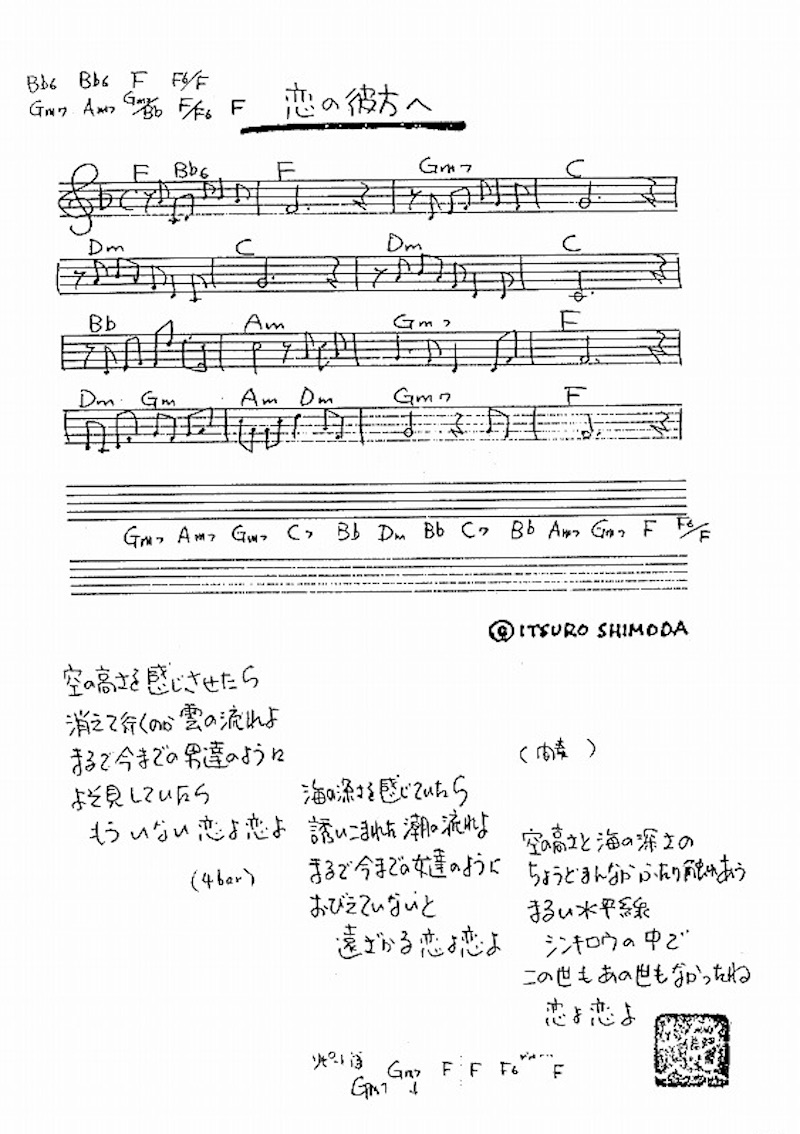 Bb6 Bb6 F F6/F
Gm7 Am7 Gm7/Bb F/F6 F
恋の彼方へ
F Bb6 F Gm7 C
Dm C Dm C
Bb Am Gm7 F
Dm Gm Am Dm Gm7 F
Gm7 Am7 Gm7 C7 Bb Dm Bb C7 Bb Am7 Gm7 F F6/F
© ITSURO SHIMODA
空の高さを感じさせたら
消えて行くのか雲の流れよ
まるで今までの男達のように
よそ見していたら
もういない恋よ恋よ
(4bar)
海の深さを感じていたら
誘いこまれた潮の流れよ
まるで今までの女達のように
おびえていないと
遠ざかる恋よ恋よ
(間奏)
空の高さと海の深さの
ちょうどまんなかふたり触れあう
まるい水平線
シンキロウの中で
この世もあの世もなかったね
恋よ恋よ
Gm7 Gm7 F F F6 F